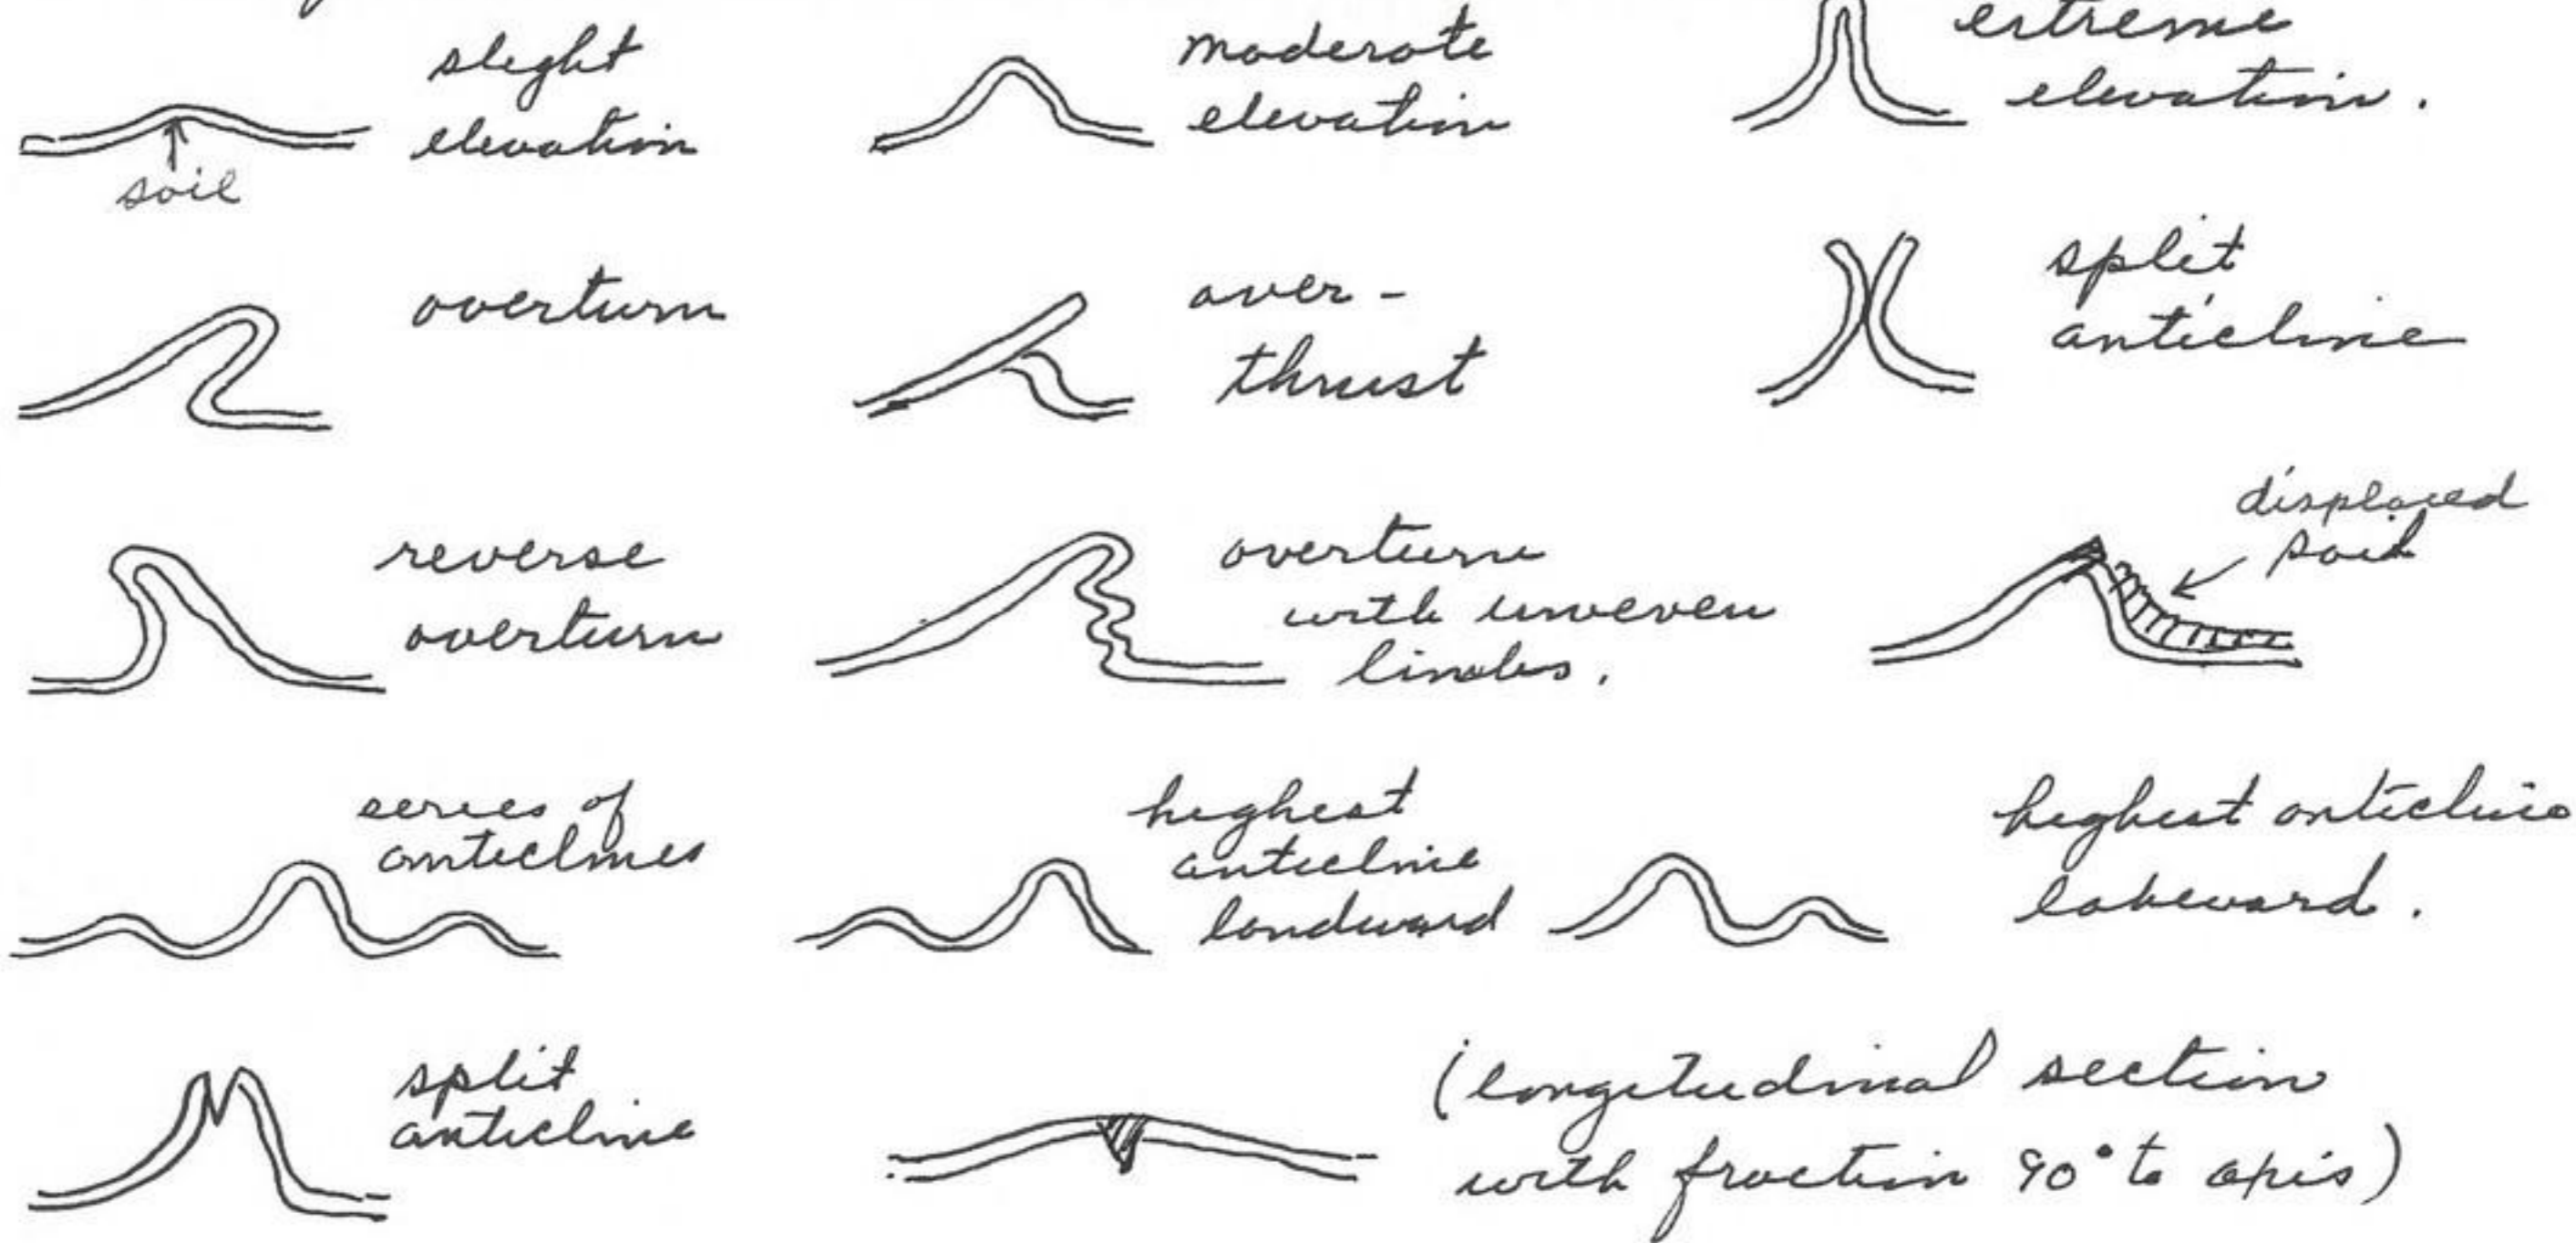 slight
elevation
soil
moderate
elevation
extreme
elevation.
overturn
over-
thrust
split
anticline
reverse
overturn
overturn
with uneven
limbs.
displaced
soil
series of
anticlines
highest
anticline
landward
highest anticline
lakeward.
split
anticline
(longitudinal section
with fraction 90° to axis)